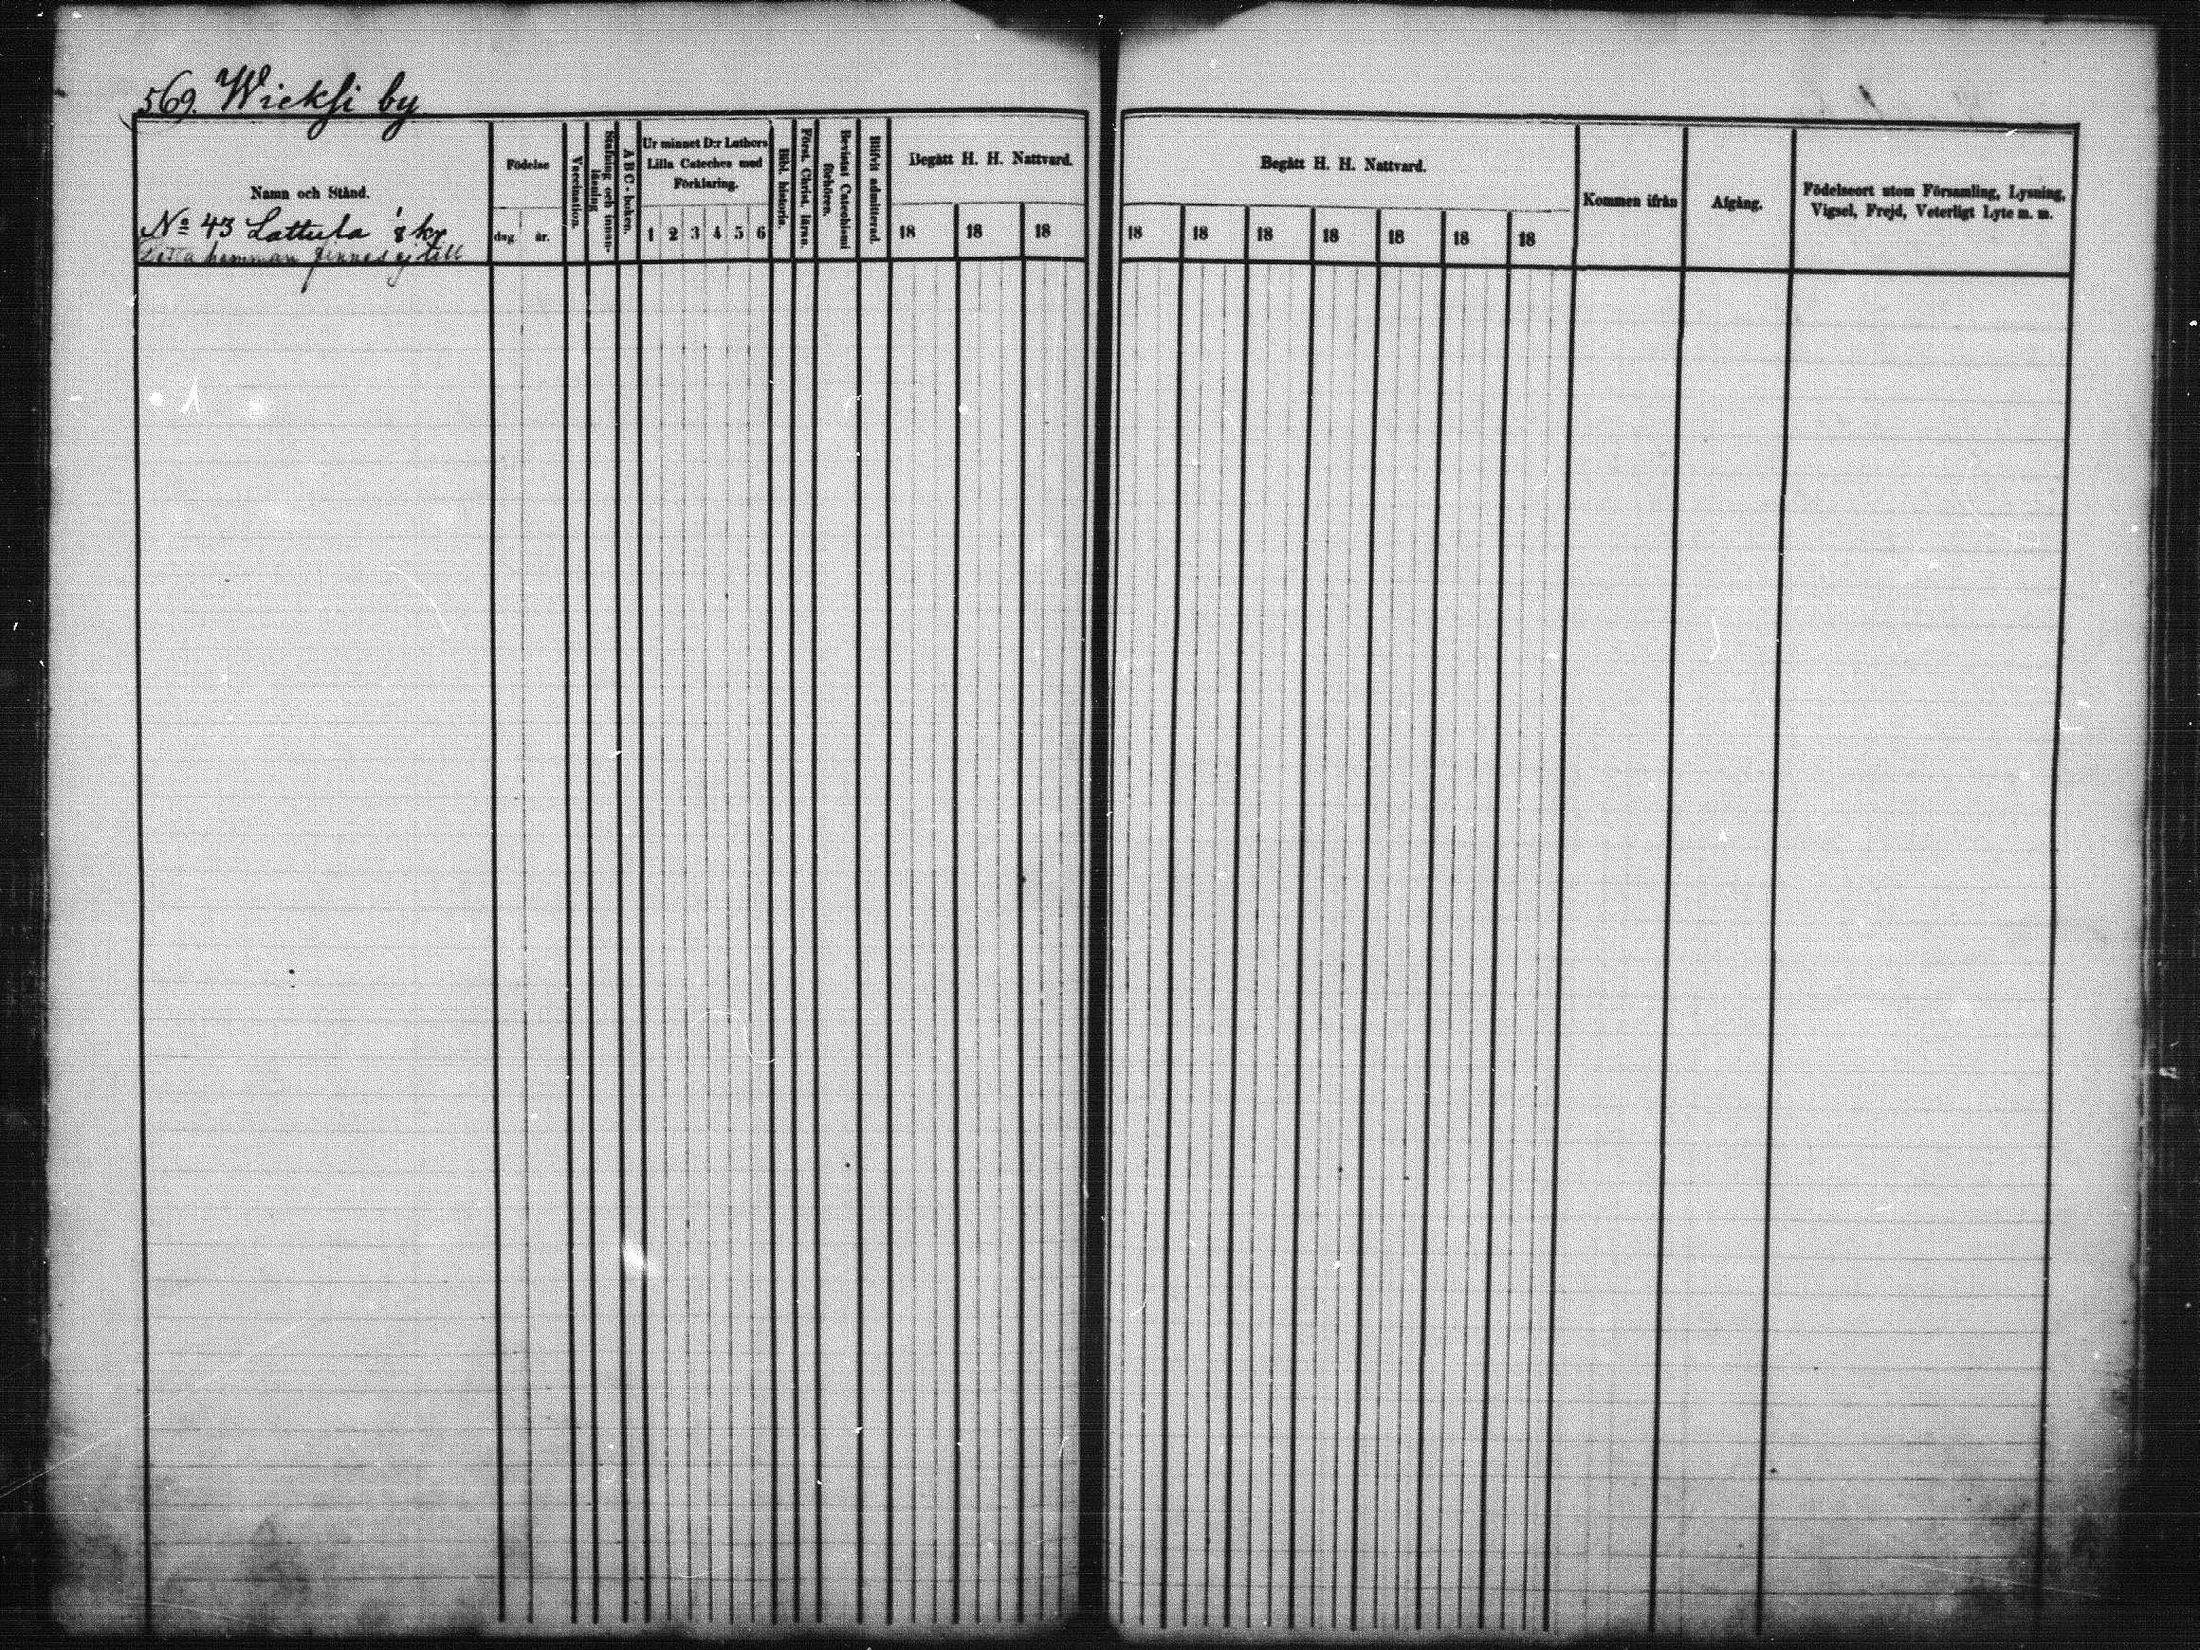 569. Wieksi by
Namn och Stånd.
No 43 Lattula 1/8 kr
Detta hemman finnes ej till
Födelse
dag. år.
Vaccination.
Stafning och innan-
läsning
A B C-boken.
Ur minnet D:r Luthers
Lilla Cateches med
Förklaring.
1 2 3 4 5 6
Bibl. historia.
Först. Christ. läran.
Bevistat Catechismi
förhören.
Blifvit admitterad.
Begått H. H. Nattvard.
18 18 18
Begått H. H. Nattvard.
18 18 18 18 18 18 18
Kommen ifrån
Afgång.
Födelseort utom Församling, Lysning,
Vigsel, Frejd, Veterligt Lyte m. m.